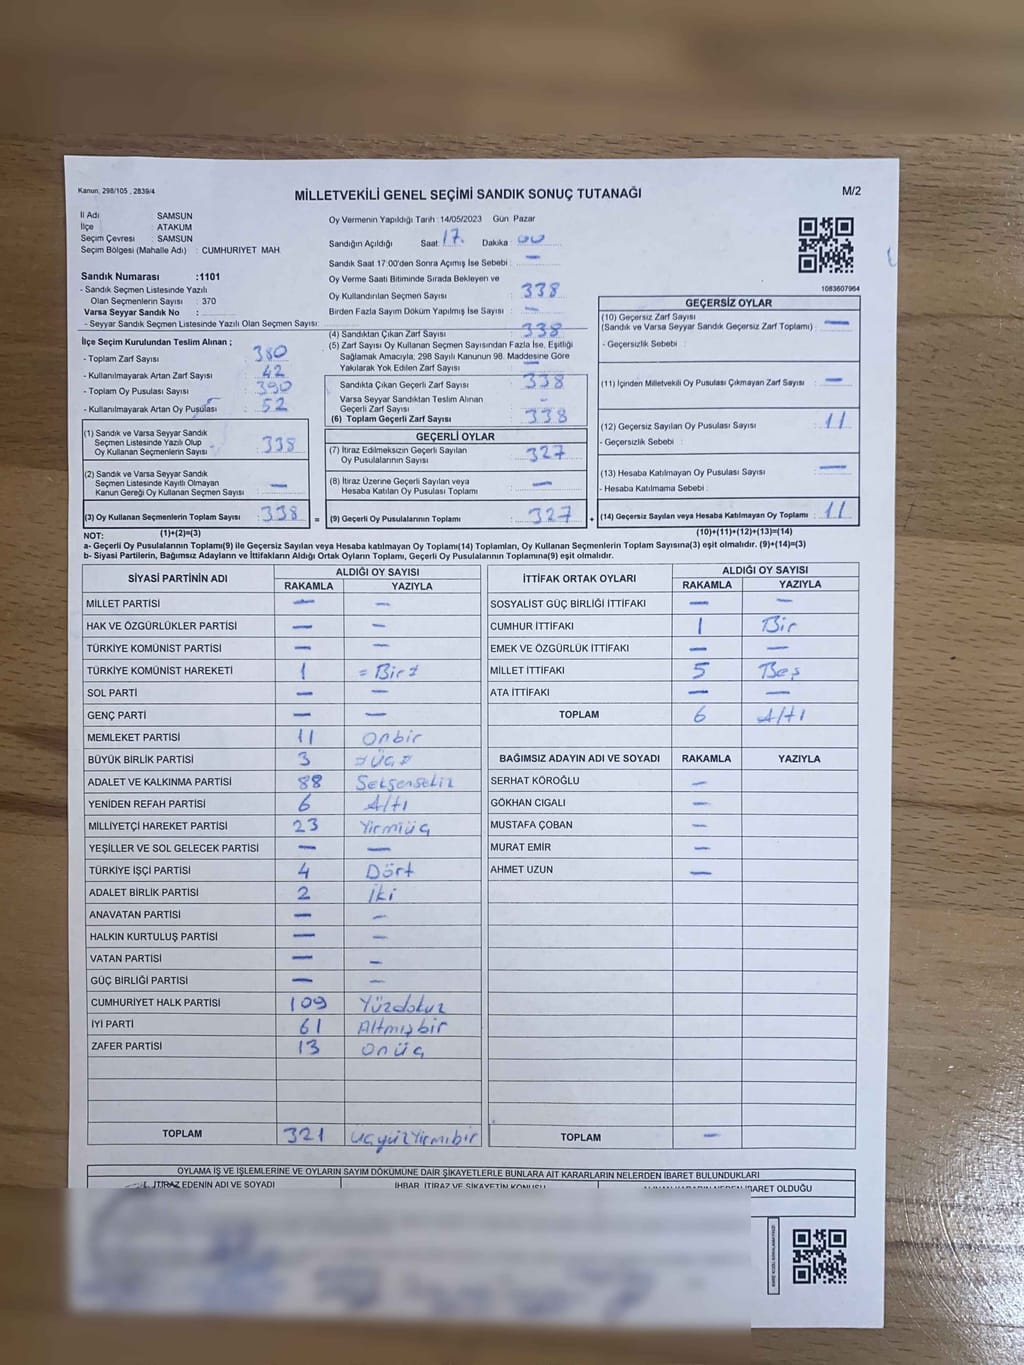 Kanun, 298/105 , 2839/4
MİLLETVEKİLİ GENEL SEÇİMİ SANDIK SONUÇ TUTANAĞI
M/2
İl Adı SAMSUN
İlçe ATAKUM
Seçim Çevresi : SAMSUN
Seçim Bölgesi (Mahalle Adı) : CUMHURİYET MAH
Oy Vermenin Yapıldığı Tarih : 14/05/2023 Gün Pazar
Sandığın Açıldığı Saat 17. Dakika 00
Sandık Saat 17:00'den Sonra Açımış İse Sebebi : —
Sandık Numarası :1101
- Sandık Seçmen Listesinde Yazılı
Olan Seçmenlerin Sayısı : 370
Varsa Seyyar Sandık No :
- Seyyar Sandık Seçmen Listesinde Yazılı Olan Seçmen Sayısı:
Oy Verme Saati Bitiminde Sırada Bekleyen ve
Oy Kullandırılan Seçmen Sayısı : 338
Birden Fazla Sayım Döküm Yapılmış İse Sayısı : —
1083607964
İlçe Seçim Kurulundan Teslim Alınan ;
- Toplam Zarf Sayısı : 380
- Kullanılmayarak Artan Zarf Sayısı : 42
- Toplam Oy Pusulası Sayısı : 390
- Kullanılmayarak Artan Oy Pusulası : 52
(1) Sandık ve Varsa Seyyar Sandık
Seçmen Listesinde Yazılı Olup
Oy Kullanan Seçmenlerin Sayısı : 338
(2) Sandık ve Varsa Seyyar Sandık
Seçmen Listesinde Kayıtlı Olmayan
Kanun Gereği Oy Kullanan Seçmen Sayısı : —
(3) Oy Kullanan Seçmenlerin Toplam Sayısı : 338 =
(1)+(2)=(3)
(4) Sandıktan Çıkan Zarf Sayısı : 338
(5) Zarf Sayısı Oy Kullanan Seçmen Sayısından Fazla İse, Eşitliği
Sağlamak Amacıyla, 298 Sayılı Kanunun 98. Maddesine Göre
Yakılarak Yok Edilen Zarf Sayısı : —
Sandıkta Çıkan Geçerli Zarf Sayısı : 338
Varsa Seyyar Sandıktan Teslim Alınan
Geçerli Zarf Sayısı : -
(6) Toplam Geçerli Zarf Sayısı : 338
GEÇERLİ OYLAR
(7) İtiraz Edilmeksizin Geçerli Sayılan
Oy Pusulalarının Sayısı : 327
(8) İtiraz Üzerine Geçerli Sayılan veya
Hesaba Katılan Oy Pusulası Toplamı : —
(9) Geçerli Oy Pusulalarının Toplamı : 327 +
GEÇERSİZ OYLAR
(10) Geçersiz Zarf Sayısı
(Sandık ve Varsa Seyyar Sandık Geçersiz Zarf Toplamı) : —
- Geçersizlik Sebebi :
(11) İçinden Milletvekili Oy Pusulası Çıkmayan Zarf Sayısı : —
(12) Geçersiz Sayılan Oy Pusulası Sayısı : 11
- Geçersizlik Sebebi :
(13) Hesaba Katılmayan Oy Pusulası Sayısı : —
- Hesaba Katılmama Sebebi :
(14) Geçersiz Sayılan veya Hesaba Katılmayan Oy Toplamı : 11
(10)+(11)+(12)+(13)=(14)
NOT:
a- Geçerli Oy Pusulalarının Toplamı(9) ile Geçersiz Sayılan veya Hesaba katılmayan Oy Toplamı(14) Toplamları, Oy Kullanan Seçmenlerin Toplam Sayısına(3) eşit olmalıdır. (9)+(14)=(3)
b- Siyasi Partilerin, Bağımsız Adayların ve İttifakların Aldığı Ortak Oyların Toplamı, Geçerli Oy Pusulalarının Toplamına(9) eşit olmalıdır.
SİYASİ PARTİNİN ADI ALDIĞI OY SAYISI
RAKAMLA YAZIYLA
MİLLET PARTİSİ — —
HAK VE ÖZGÜRLÜKLER PARTİSİ — —
TÜRKİYE KOMÜNİST PARTİSİ — —
TÜRKİYE KOMÜNİST HAREKETİ 1 = Bir =
SOL PARTİ — —
GENÇ PARTİ — —
MEMLEKET PARTİSİ 11 Onbir
BÜYÜK BİRLİK PARTİSİ 3 = Üç =
ADALET VE KALKINMA PARTİSİ 88 Seksensekiz
YENİDEN REFAH PARTİSİ 6 Altı
MİLLİYETÇİ HAREKET PARTİSİ 23 Yirmiüç
YEŞİLLER VE SOL GELECEK PARTİSİ — —
TÜRKİYE İŞÇİ PARTİSİ 4 Dört
ADALET BİRLİK PARTİSİ 2 İki
ANAVATAN PARTİSİ — —
HALKIN KURTULUŞ PARTİSİ — —
VATAN PARTİSİ — —
GÜÇ BİRLİĞİ PARTİSİ — —
CUMHURİYET HALK PARTİSİ 109 Yüzdokuz
İYİ PARTİ 61 Altmışbir
ZAFER PARTİSİ 13 Onüç
TOPLAM 321 Üçyüzyirmibir
İTTİFAK ORTAK OYLARI ALDIĞI OY SAYISI
RAKAMLA YAZIYLA
SOSYALİST GÜÇ BİRLİĞİ İTTİFAKI — —
CUMHUR İTTİFAKI 1 Bir
EMEK VE ÖZGÜRLÜK İTTİFAKI — —
MİLLET İTTİFAKI 5 Beş
ATA İTTİFAKI — —
TOPLAM 6 Altı
BAĞIMSIZ ADAYIN ADI VE SOYADI RAKAMLA YAZIYLA
SERHAT KÖROĞLU —
GÖKHAN CIGALI —
MUSTAFA ÇOBAN —
MURAT EMİR —
AHMET UZUN —
TOPLAM —
OYLAMA İŞ VE İŞLEMLERİNE VE OYLARIN SAYIM DÖKÜMÜNE DAİR ŞİKAYETLERLE BUNLARA AİT KARARLARIN NELERDEN İBARET BULUNDUKLARI
İTİRAZ EDENİN ADI VE SOYADI İHBAR, İTİRAZ VE ŞİKAYETİN KONUSU İBARET OLDUĞU